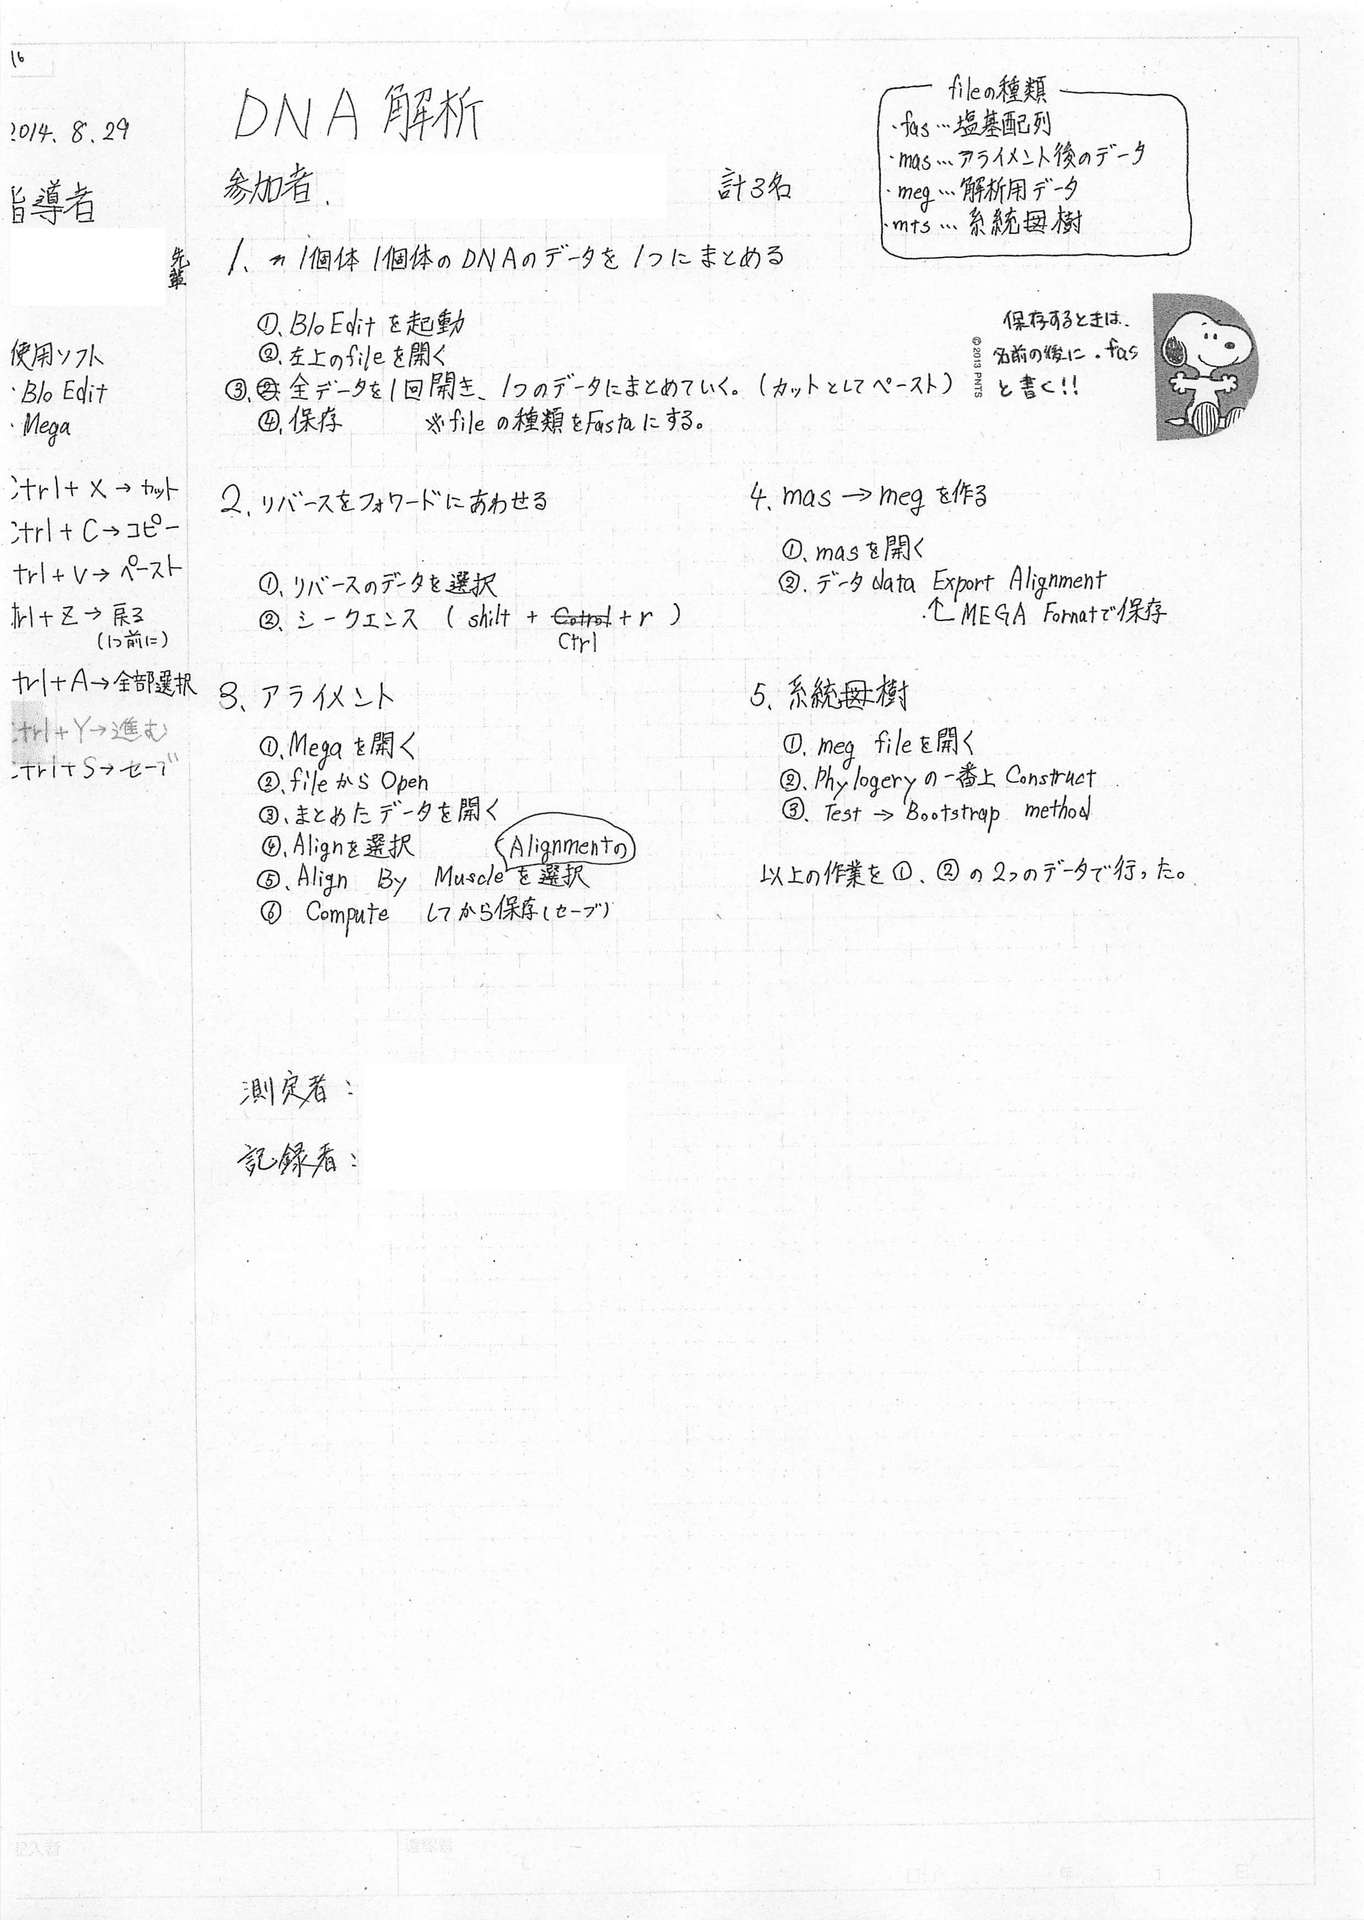 16
2014.8.29
指導者
先輩
使用ソフト
・Blo Edit
・Mega
Ctrl+X→カット
Ctrl+C→コピー
trl+V→ペースト
trl+Z→戻る
(1つ前に)
trl+A→全部選択
Ctrl+Y→進む
Ctrl+S→セーブ
DNA 解析
参加者.
計3名
fileの種類
・fas…塩基配列
・mas…アライメント後のデータ
・meg…解析用データ
・mts…系統樹
1. 1個体1個体のDNAのデータを1つにまとめる
①.Blo Editを起動
②.左上のfileを開く
③.全データを1回開き、1つのデータにまとめていく。(カットとしてペースト)
④.保存 ※fileの種類をFastaにする。
保存するときは、
名前の後に .fas
と書く!!
© 2013 PNTS
2.リバースをフォワードにあわせる
①.リバースのデータを選択
②.シークエンス (shilt + Cotrol + r )
Ctrl
3.アライメント
①.Megaを開く
②.fileから Open
③.まとめたデータを開く
④.Alignを選択
Alignmentの
⑤.Align By Muscleを選択
⑥ Compute してから保存(セーブ)
4. mas→megを作る
①.masを開く
②.データdata Export Alignment
↑MEGA Fornatで保存
5.系統樹
①.meg fileを開く
②.Phylogeryの一番上 Construct
③.Test→Bootstrap method
以上の作業を①、②の2つのデータで行った。
測定者:
記録者: